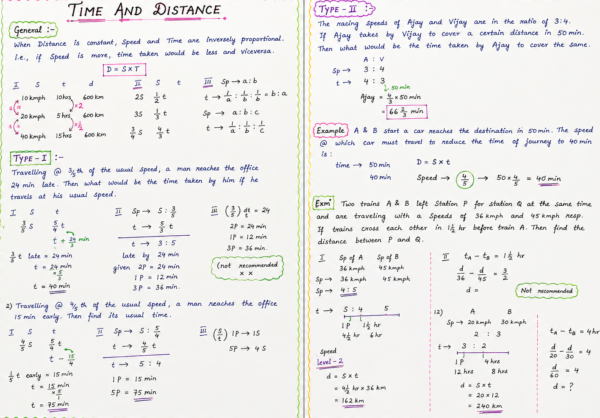 TIME AND DISTANCE
General :-
When Distance is constant, Speed and Time are Inversely proportional.
I.e., if Speed is more, time taken would be less and viceversa.
D = S×T
I S t d
10 kmph 10 hrs 600 km
20 kmph 5 hrs 600 km
40 kmph 15 hrs 600 km
II S t
2S 1/2 t
3S 1/3 t
3/4 S 4/3 t
III Sp → a:b
t → 1/a : 1/b : 1/b = b:a
Sp → a:b:c
t → 1/a : 1/b : 1/c
TYPE-I :-
Travelling @ 3/5th of the usual speed, a man reaches the office
24 min late. Then what would be the time taken by him if he
travels at his usual speed.
I S t
3/5 S 5/3 t
3/5 t late = 24 min
t = 40 min
II Sp → S : 3/5
t → 5/3 t
t → 3 : 5
late by 24 min
given 2P = 24 min
1P = 12 min
3P = 36 min.
III
2P = 24 min
1P = 12 min
3P = 36 min.
(not recommended
× ×
2) Travelling @ 4/5th of the usual speed, a man reaches the office
15 min early. Then find its usual time.
I S t
4/5 S 5/4 t
1/5 t early = 15 min
t = 75 min
II Sp → S : 5/4
t → 4/5 t
t → 5 : 4
1P = 15 min
5P = 75 min
III 1P → 1S
5P → 4S
TYPE-II :-
The racing speeds of Ajay and Vijay are in the ratio of 3:4.
If Ajay takes by Vijay to cover a certain distance in 50 min.
Then what would be the time taken by Ajay to cover the same.
A : V
Sp → 3 : 4
t → 4 : 3
50 min
Ajay = 4/3 × 50 min
= 66 2/3 min
Example A & B start a car reaches the destination in 50 min. The speed
@ which car must travel to reduce the time of journey to 40 min
is :
time → 50 min
40 min
D = S × t
Speed → 4/5 → 50 × 4/5 = 40 min
Exm: Two trains A & B left Station P for station Q at the same time
and are traveling with a Speeds of 36 kmph and 45 kmph resp.
If trains cross each other in 1 1/2 hr before train A. Then find the
distance between P and Q.
I Sp of A Sp of B
36 kmph 45 kmph
Sp → 36 kmph 45 kmph
Sp → 4 : 5
t → 5 : 4 5
1P 1 1/2 hr
4 1/2 hr 6 hr
Speed
level-2
d = S × t
= 4 1/2 hr × 36 km
= 162 km
II tA - tB = 1 1/2 hr
d/36 - d/45 = 3/2
d =
Not recommended
12) A B
Sp → 20 kmph 30 kmph
2 : 3
t → 3 : 2
1P 4 hr
12 hrs 8 hr
d = S × t
= 20 × 12
= 240 km
tA - tB = 4 hr
d/20 - d/30 = 4
d/60 = 4
d = ?